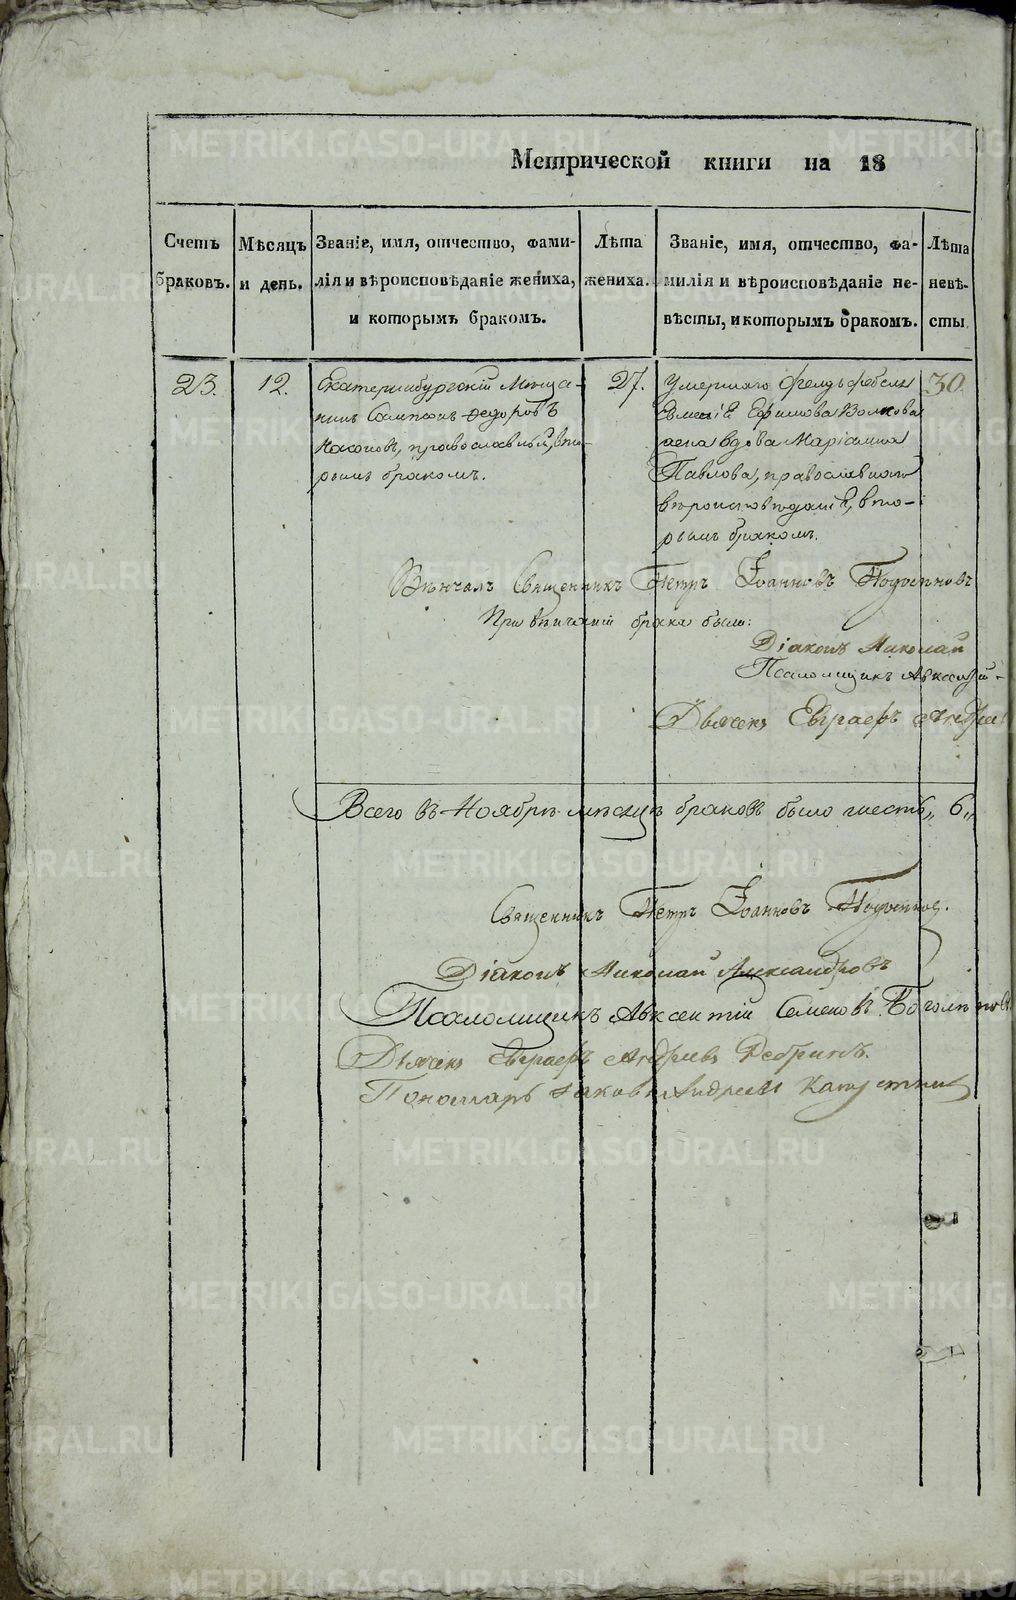 Метрической книги на 18
Счетъ браковъ.
Мѣсяцъ и день.
Званіе, имя, отчество, фами-
лія и вѣроисповѣданіе жениха,
и которымъ бракомъ.
Лѣта жениха.
Званіе, имя, отчество, фа-
милія и вѣроисповѣданіе не-
вѣсты, и которымъ бракомъ.
Лѣта невѣ-
сты.
23.
12.
Екатеринбургскій Мѣща-
нинъ Сампсонъ Ѳедоровъ
православный, вто-
рымъ бракомъ.
27.
Умершаго Фельдфебеля
Евменія Ефимова Волкова
жена вдова Маріамна
Павлова, православнаго
вѣроисповѣданія, вто-
рымъ бракомъ.
30.
Вѣнчалъ Священникъ Петръ Іоанновъ
При вѣнчаніи брака были:
Діаконъ Николай
Псаломщикъ Авксентій
Дьячекъ Евграфъ
Всего въ Ноябрѣ мѣсяцѣ браковъ было шесть „ 6 „
Священникъ Петръ Іоанновъ
Діаконъ Николай Александровъ
Псаломщикъ Авксентій Семеновъ Боголѣповъ
Дьячекъ Евграфъ Андреевъ
Пономарь Іаковъ Андреевъ
METRIKI.GASO-URAL.RU